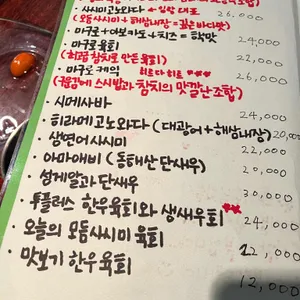 · 사시미고노와다 + 입짱 대포 26,000
(모둠사시미 + 해삼내장 = 깊은바다맛)
· 마구로 + 아보카도 + 치즈 = 핵맛 24,000
· 마구로육회 22,000
(최고참치로 만든 육회)
· 마구로 케익 26,000
(참치의 맛깔난조합)
· 시메사바 24,000
· 히라메고노와다 (대광어 + 해삼내장) 20,000
· 생연어사시미 22,000
· 아마에비 (동해산 단새우) 20,000
· 성게알과 단새우 30,000
· 투플러스 한우육회와 생새우회 24,000
· 오늘의 모듬사시미 육회 22,000
· 맛보기 한우육회 12,000